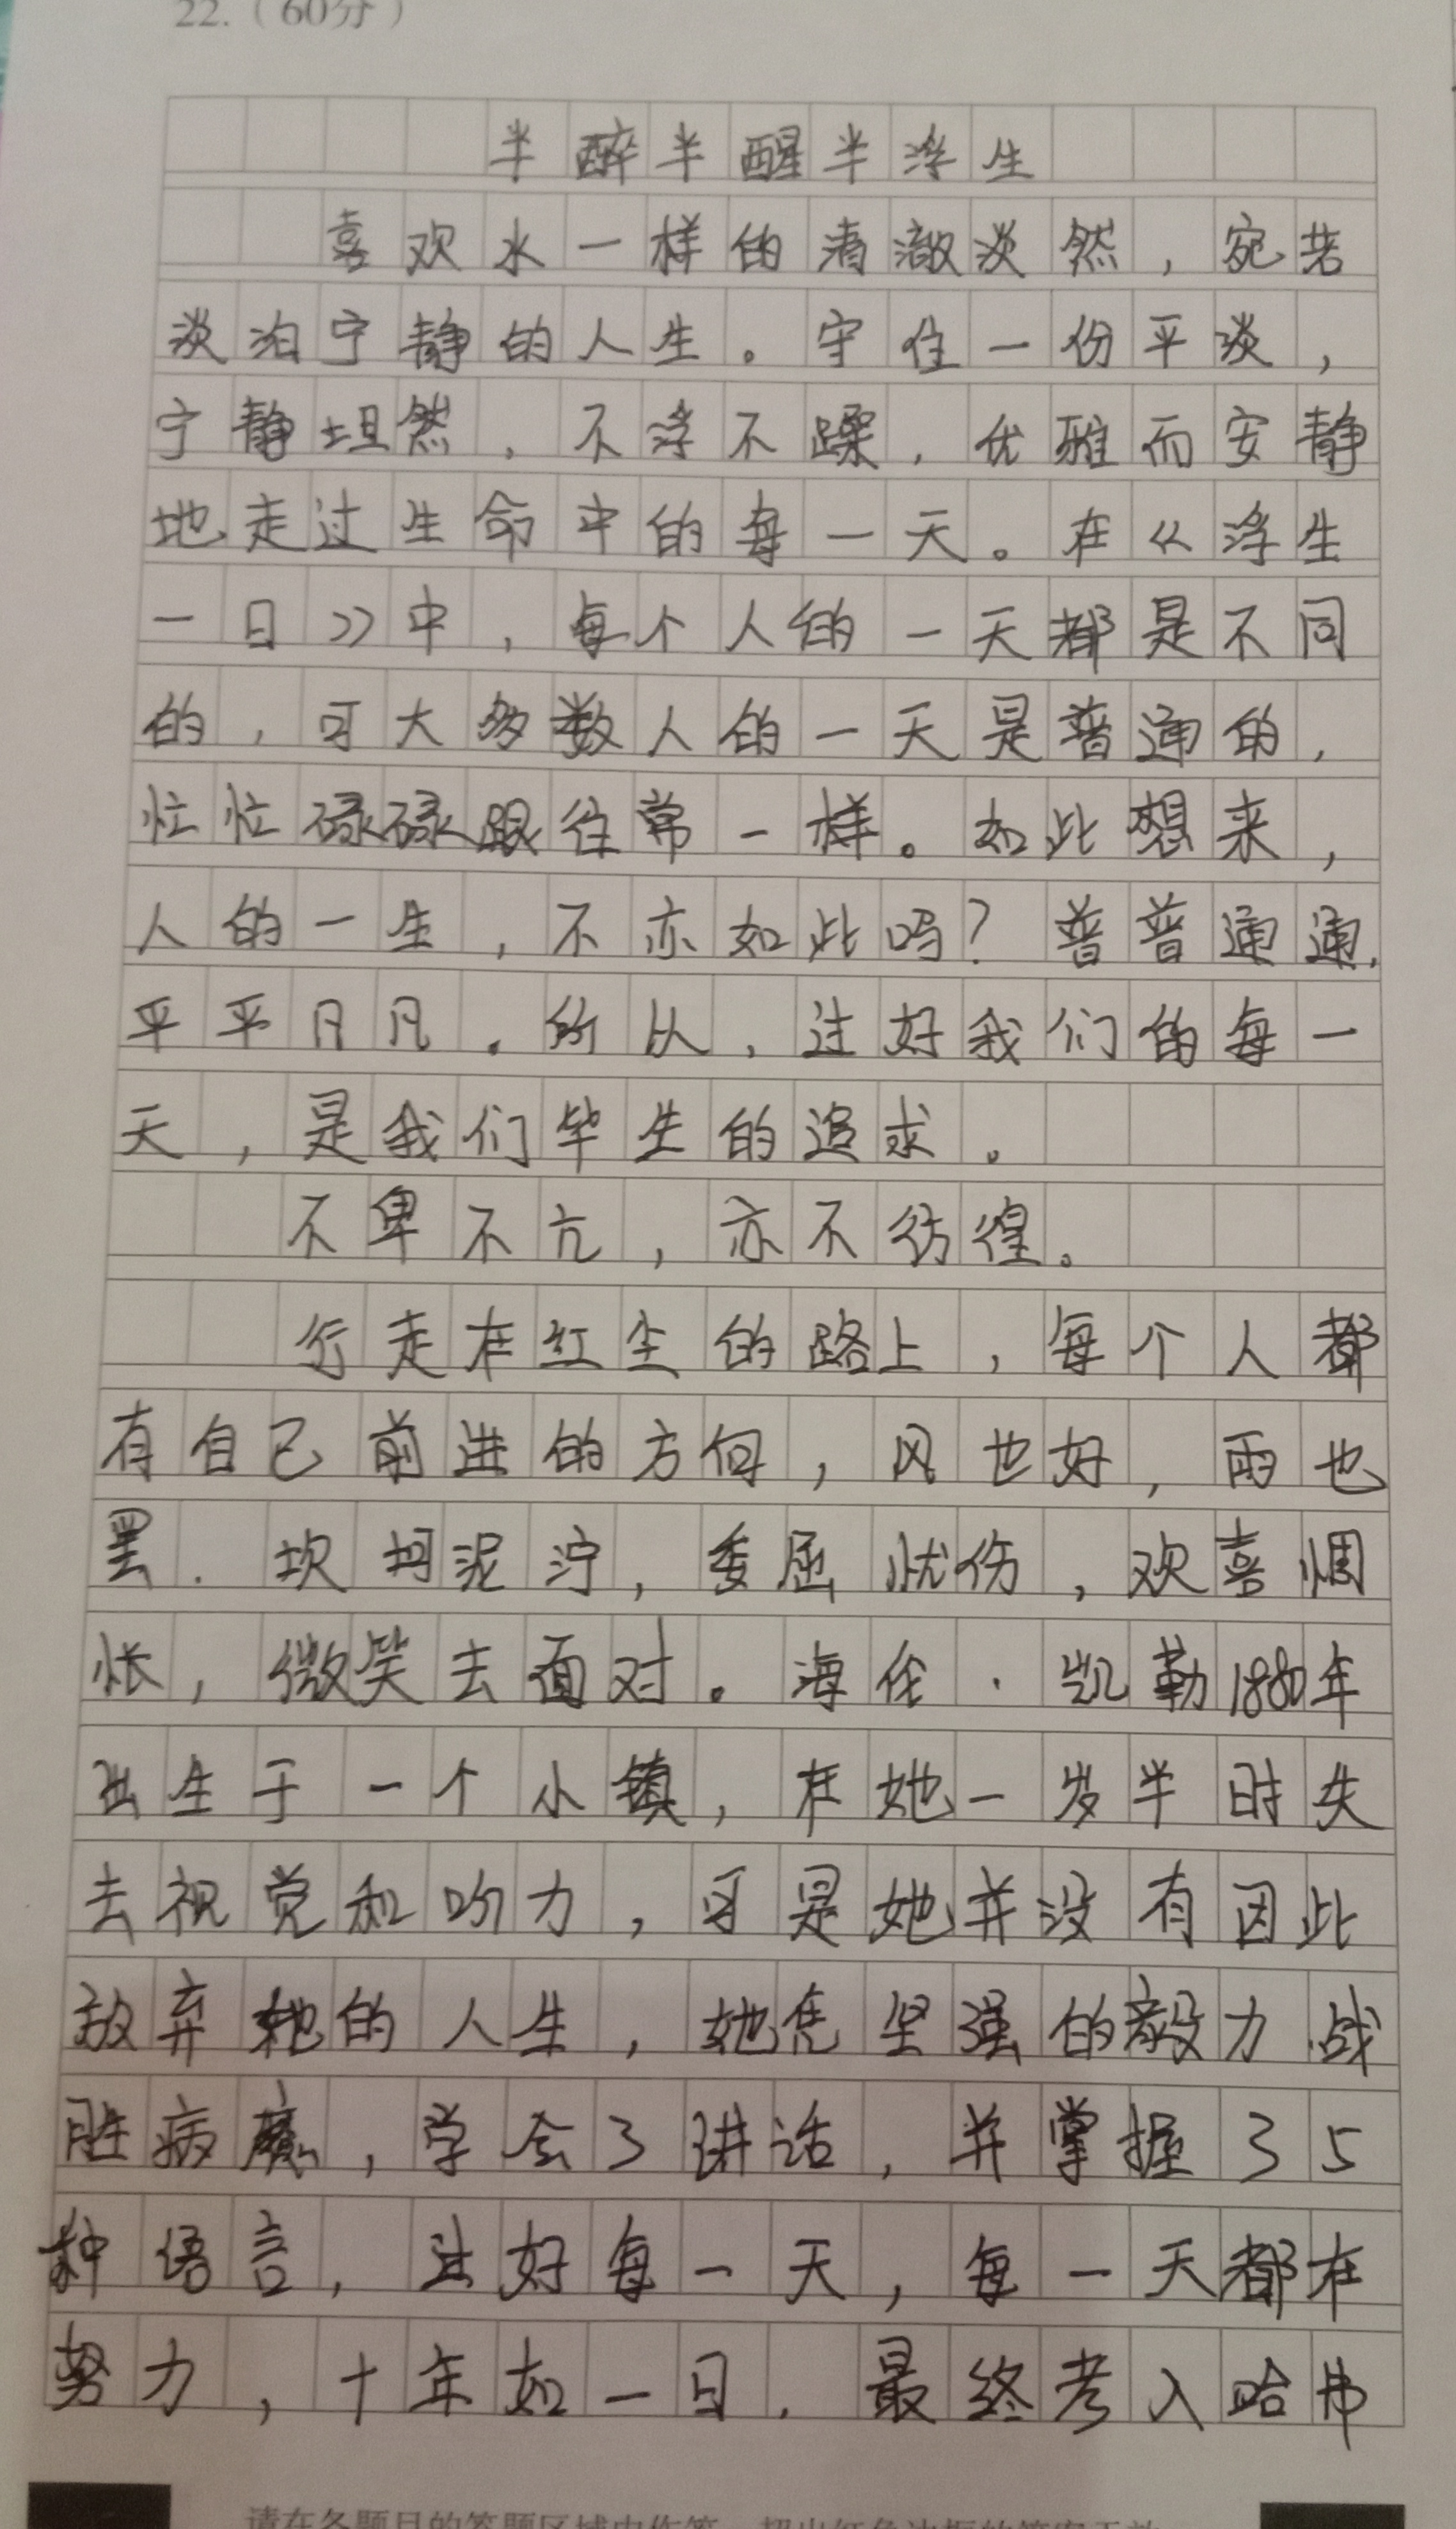 22.（60分）
半醉半醒半浮生
喜欢水一样的清澈淡然，宛若
淡泊宁静的人生。守住一份平淡，
宁静坦然，不浮不躁，优雅而安静
地走过生命中的每一天。在《浮生
一日》中，每个人的一天都是不同
的，可大多数人的一天是普通的，
忙忙碌碌跟往常一样。如此想来，
人的一生，不亦如此吗？普普通通，
平平凡凡。所以，过好我们的每一
天，是我们毕生的追求。
不卑不亢，亦不彷徨。
行走在红尘的路上，每个人都
有自己前进的方向，风也好，雨也
罢．坎坷泥泞，委屈忧伤，欢喜惆
怅，微笑去面对。海伦·凯勒1880年
出生于一个小镇，在她一岁半时失
去视觉和听力，可是她并没有因此
放弃她的人生，她凭坚强的毅力战
胜病魔，学会了讲话，并掌握了5
种语言，过好每一天，每一天都在
努力，十年如一日．最终考入哈弗
请在各题目的答题区域内作答，超出红色边框的答案无效